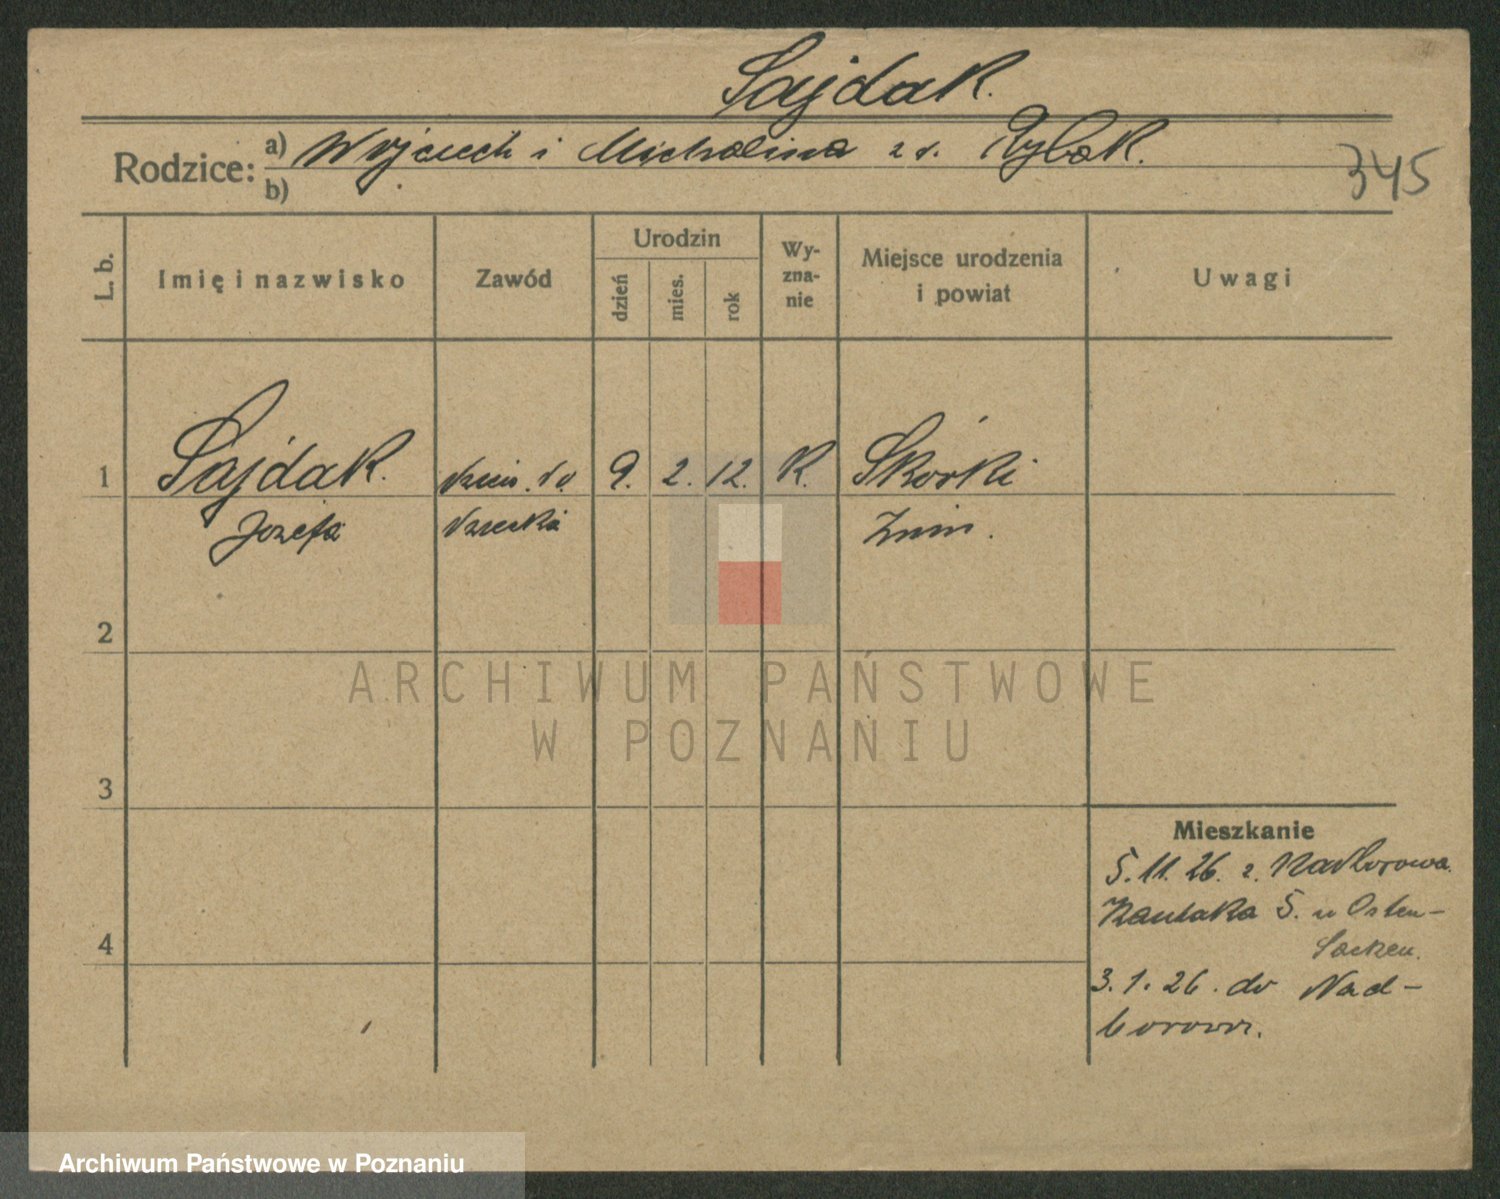 Sajdak.
Rodzice: a) Wojciech i Michalina z d. Rybak.
b)
345
L. b.
Imię i nazwisko
Zawód
Urodzin
dzień
mies.
rok
Wy-
zna-
nie
Miejsce urodzenia
i powiat
Uwagi
1
Sajdak. 9. 2. 12. K. Skórki
Józefa Żnin.
2
3
4
ARCHIWUM PAŃSTWOWE
W POZNANIU
Mieszkanie
5. 11. 26. z Nadborowa.
5. u Osten-
Sacken.
3. 1. 26. do Nad-
borowa.
Archiwum Państwowe w Poznaniu